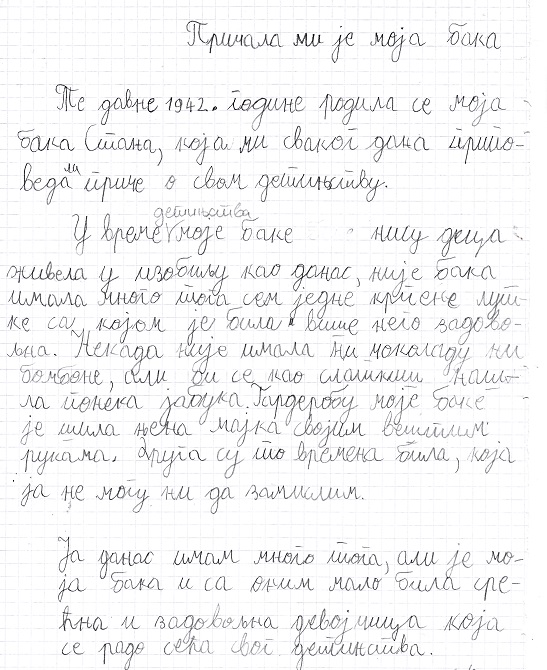 Причала ми је моја бака
Те давне 1942. године родила се моја
бака Стана, која ми сваког дана припо-
ведала приче о свом детињству.
детињства
У време моје баке нису деца
живела у изобиљу као данас, није бака
имала много тога сем једне крпене лут-
ке са којом је била више него задово-
љна. Некада није имала ни чоколаду ни
бомбоне, али би се као слаткиш нашл-
ла понека јабука. Гардеробу моје баке
је шила њена мајка својим вештим
рукама. Друга су то времена била, која
ја не могу ни да замислим.
Ја данас имам много тога, али је мо-
ја бака и са оним мало била сре-
ћна и задовољна девојчица која
се радо сећа свог детињства.